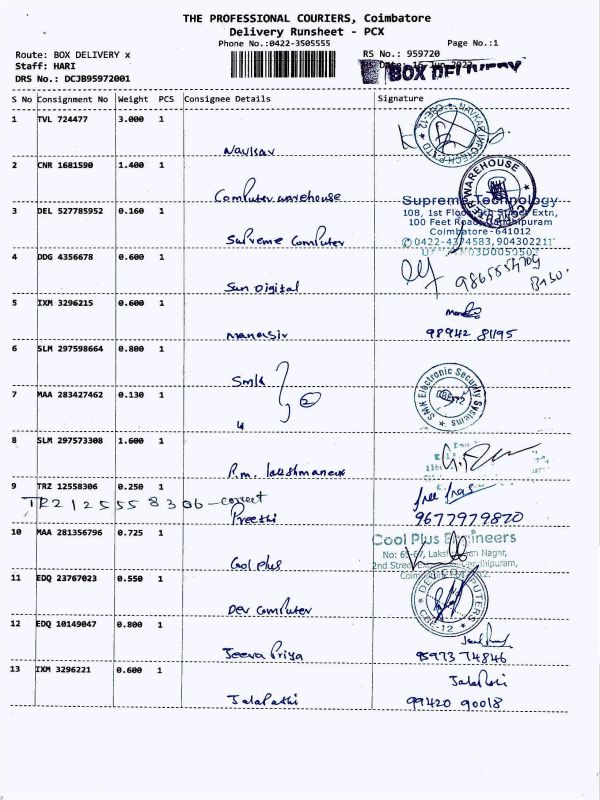 THE PROFESSIONAL COURIERS, Coimbatore
Delivery Runsheet - PCX
Phone No.:0422-3505555
Page No.:1
Route: BOX DELIVERY x
RS No.: 959720
Staff: HARI
BOX DELIVERY
DRS No.: DCJB95972001
S No Consignment No Weight PCS Consignee Details Signature
1 TVL 724477 3.000 1
Navkar
2 CNR 1681590 1.400 1
Computer warehouse
WAREHOUSE
Supreme Technology
3 DEL 527785952 0.160 1
108, 1st Floor
Extn,
100 Feet Road, Gandhipuram
Supreme Computer
Coimbatore-641012
4 DDG 4356678 0.600 1
Sun Digital
5 IXM 3296215 0.600 1
98942 81195
6 SLM 297598664 0.800 1
SMK
SMK Electronic Security Systems
2
7 MAA 283427462 0.130 1
8 SLM 297573308 1.600 1
9 TRZ 12558306 0.250 1
TRZ 125558306 - correct
Preethi
9677979820
10 MAA 281356796 0.725 1
Cool Plus Engineers
Cool plus
11 EDQ 23767023 0.550 1
Dev Computer
DEV COMPUTERS
CBE-12
12 EDQ 10149047 0.800 1
Jeeva Priya
95973 74846
13 IXM 3296221 0.600 1
99420 90018